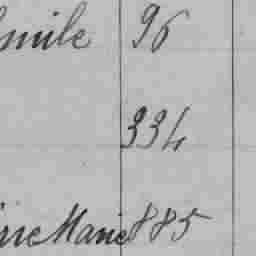 mile 96
334
rre Marie 885